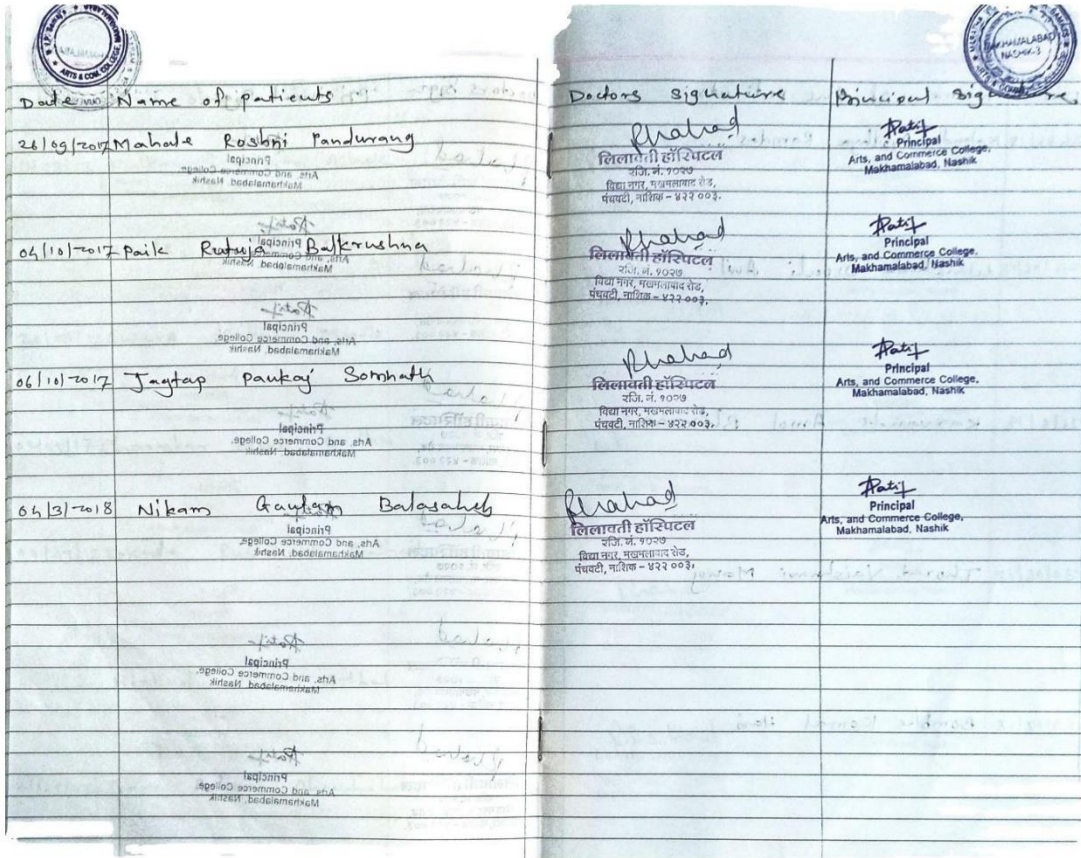 ARTS & COM. COLLEGE
MAKHAMALABAD
NASHIK-3
Date Name of patients Doctors signature Principal signature
26/09/2017 Mahale Roshni Pandurang
Rhahad
लिलावती हॉस्पिटल
रजि. नं. १०२७
विद्या नगर, मखमलाबाद रोड,
पंचवटी, नाशिक - ४२२ ००३.
Patil
Principal
Arts, and Commerce College,
Makhamalabad, Nashik
04/10/2017 Paik Rutuja Balkrushna
Rhahad
लिलावती हॉस्पिटल
रजि. नं. १०२७
विद्या नगर, मखमलाबाद रोड,
पंचवटी, नाशिक - ४२२ ००३.
Patil
Principal
Arts, and Commerce College,
Makhamalabad, Nashik
06/10/2017 Jagtap Pankaj Somnath
Rhahad
लिलावती हॉस्पिटल
रजि. नं. १०२७
विद्या नगर, मखमलाबाद रोड,
पंचवटी, नाशिक - ४२२ ००३.
Patil
Principal
Arts, and Commerce College,
Makhamalabad, Nashik
04/3/2018 Nikam Gautam Balasaheb
Rhahad
लिलावती हॉस्पिटल
रजि. नं. १०२७
विद्या नगर, मखमलाबाद रोड,
पंचवटी, नाशिक - ४२२ ००३.
Patil
Principal
Arts, and Commerce College,
Makhamalabad, Nashik